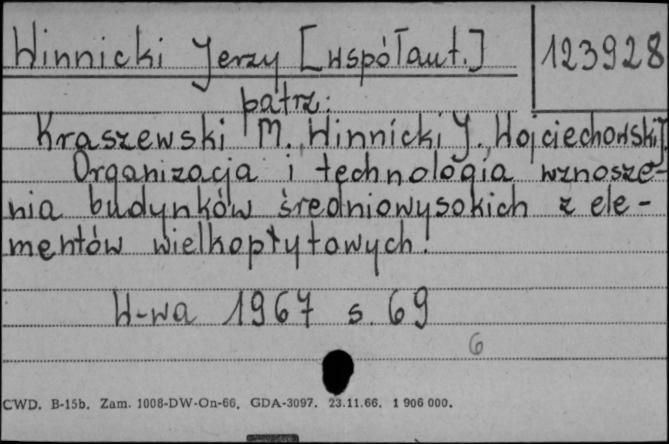 Winnicki Jerzy [współaut.] 123928
patrz:
Kraszewski M., Winnicki J., Wojciechowski J.
Organizacja i technologia wznosze-
nia budynków średniowysokich z ele-
mentów wielkopłytowych.
W-wa 1967 s. 69
6
CWD. B-15b. Zam. 1008-DW-On-66. GDA-3097. 23.11.66. 1 906 000.